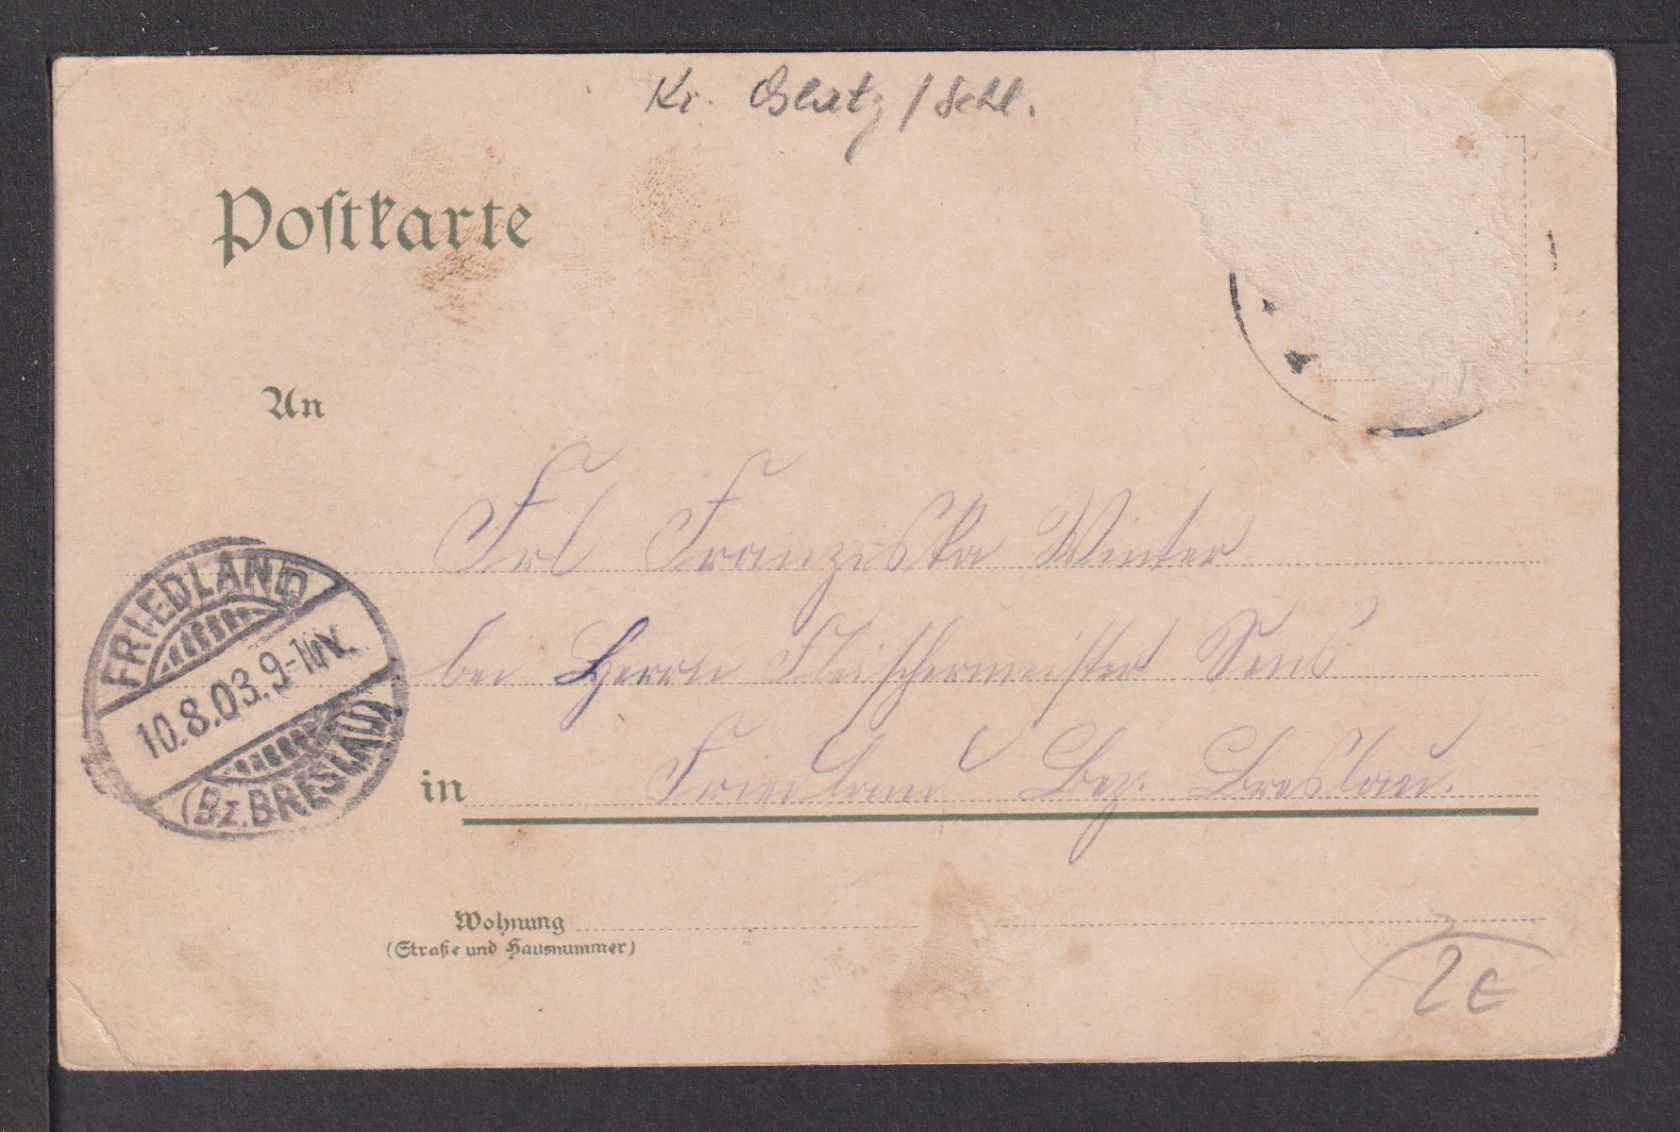 Kr. Glatz / Schl.
Postkarte
An
Frl Franziska Winter
bei Herrn Fleischermeister
in Friedland Bez. Breslau.
Wohnung
(Straße und Hausnummer)
FRIEDLAND
10.8.03. 9-
(Bz. BRESLAU)
2 €